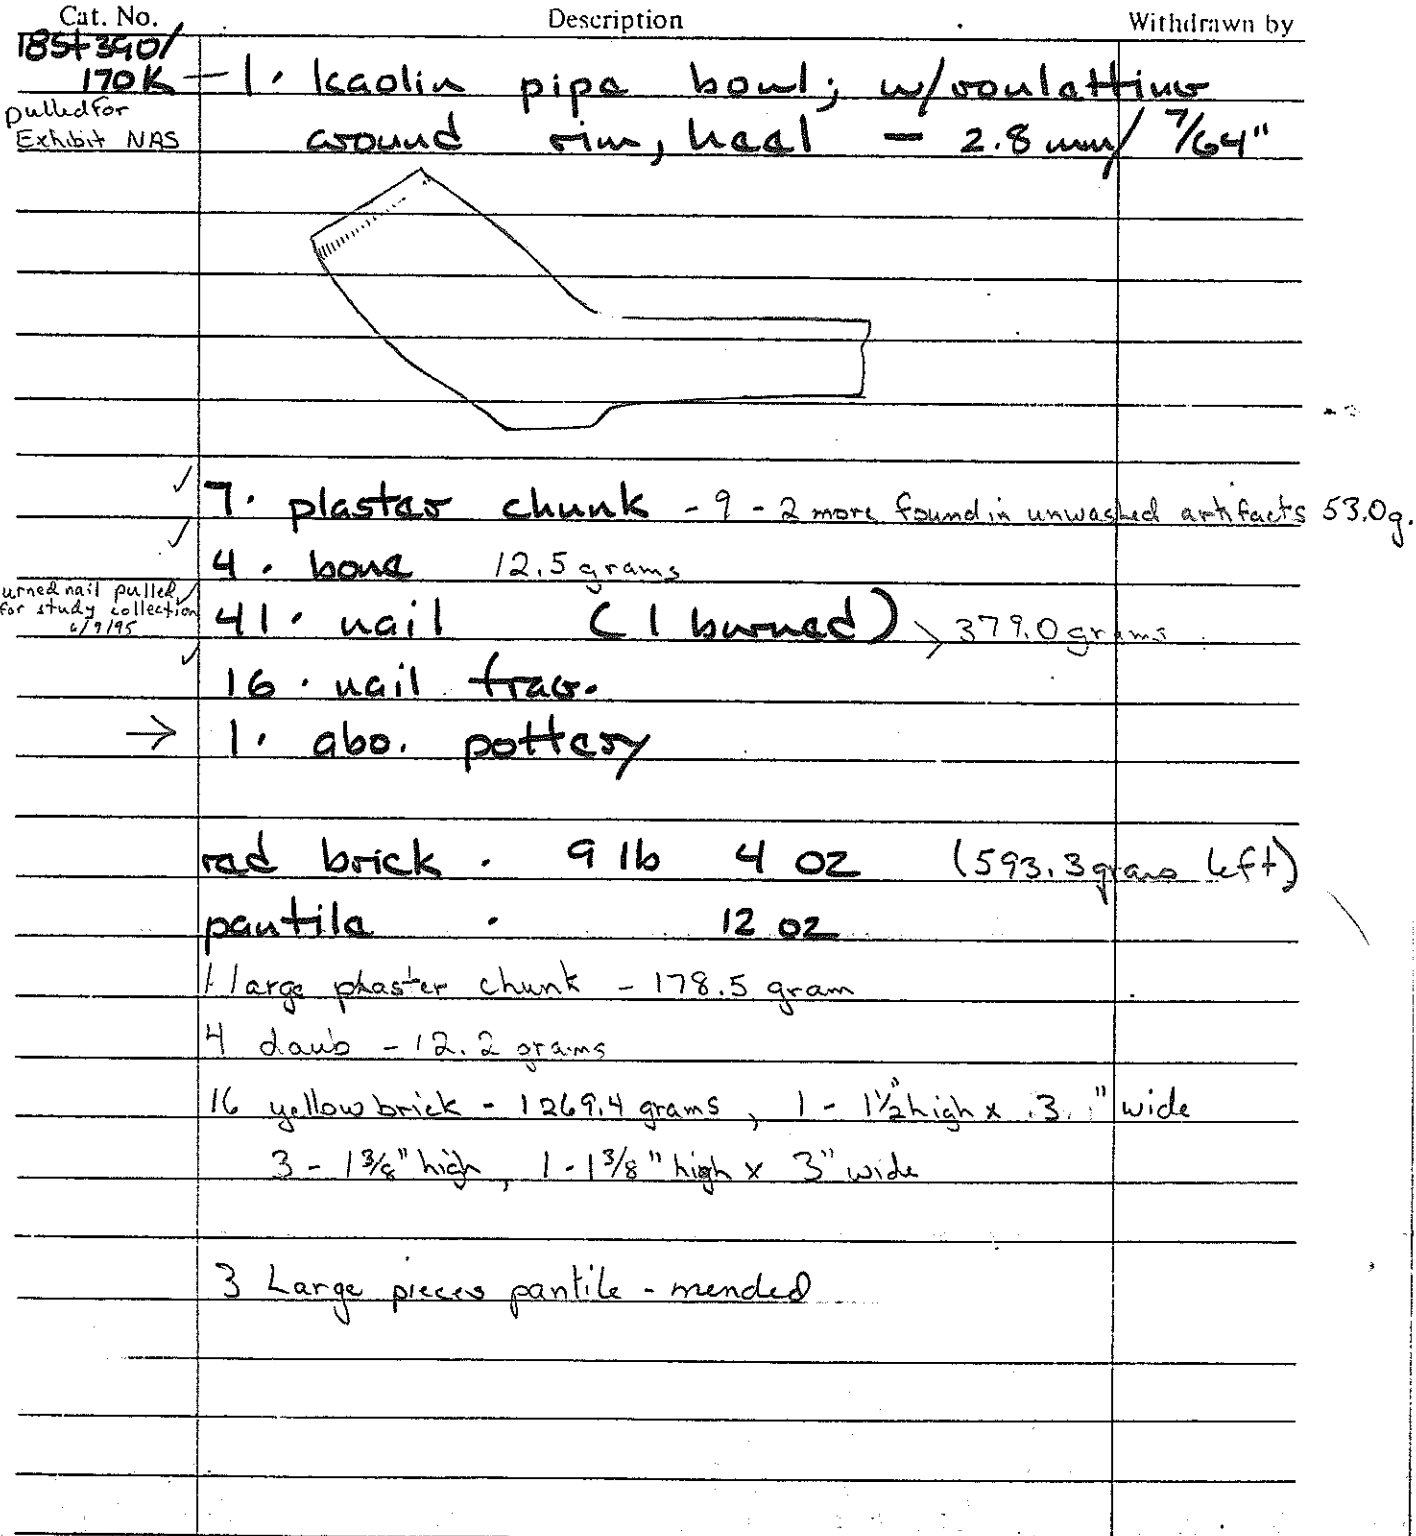 Cat. No. Description Withdrawn by
185+390/
170K – 1. kaolin pipe bowl; w/rouletting
pulled for
Exhibit NAS around rim, heel – 2.8 mm/ 7/64"
✓ 7. plaster chunk - 9 - 2 more found in unwashed artifacts 53.0g.
✓ 4. bone 12.5 grams
urned nail pulled ✓
for study collection
6/9/95
41. nail (1 burned) > 379.0 grams
✓ 16. nail frag.
→ 1. abo. pottery
red brick . 9 lb 4 oz (593.3 grams left)
pantile . 12 oz
1 large plaster chunk - 178.5 gram
4 daub - 12.2 grams
16 yellow brick - 1269.4 grams, 1 - 1½" high x 3" wide
3 - 1 3/8" high, 1 - 1 3/8" high x 3" wide
3 Large pieces pantile - mended